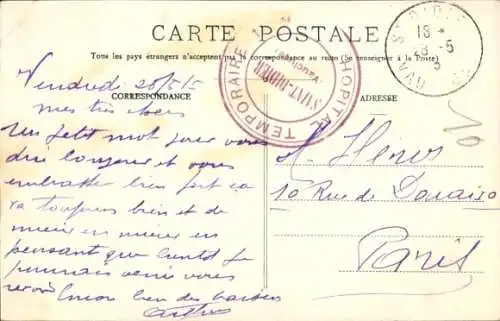 CARTE POSTALE
Tous les pays étrangers n'acceptent pas la correspondance au recto (Se renseigner à la Poste)
CORRESPONDANCE
ADRESSE
HOPITAL TEMPORAIRE
SAINT-DIDIER
Vaucluse
18 *
28 - 5
Vendredi 28/5/5
mes très chers
un petit mot pour vous
dire bonjour et vous
embrasser bien fort ça
va toujours bien et de
mieux en mieux en
pensant que bientôt je
pourrais venir vous
revoir bien des baisers
10 Rue de
Paris